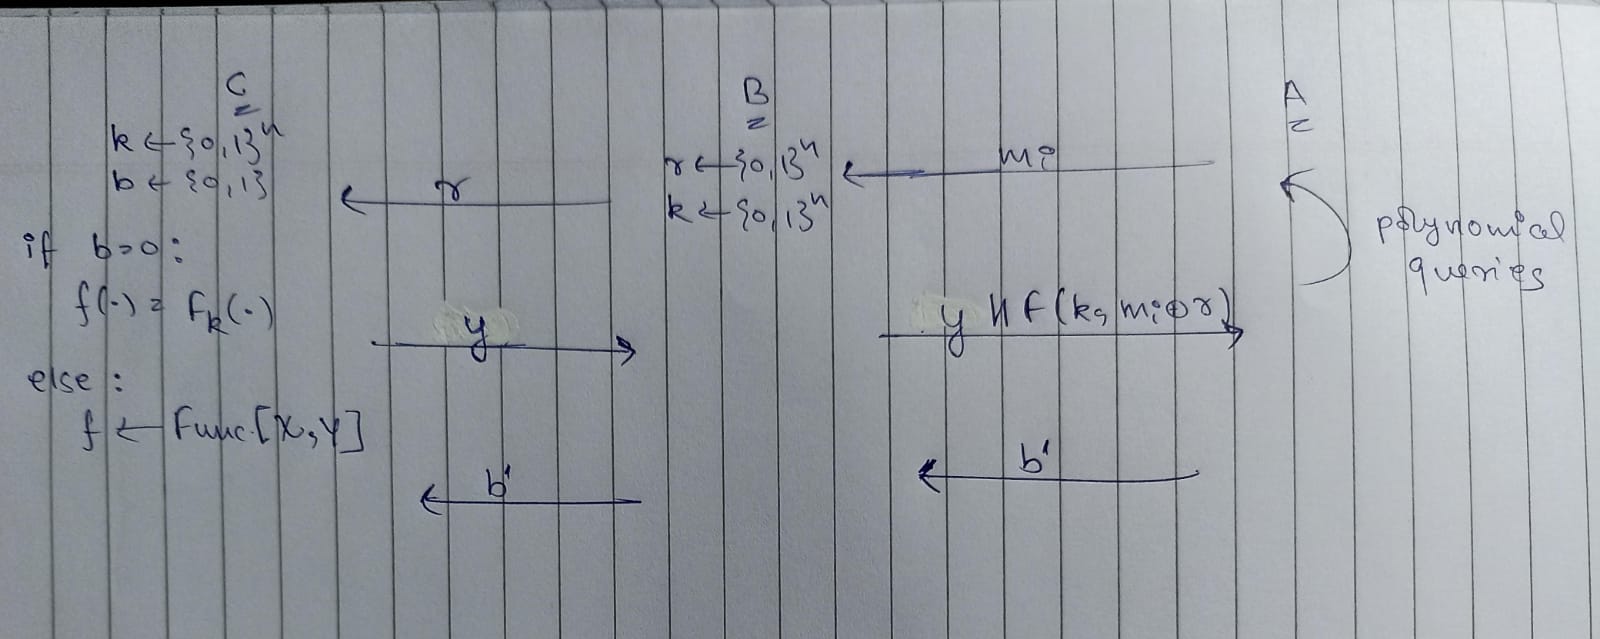 C
k ← {0,1}ⁿ
b ← {0,1}
if b=0:
f(·) = Fₖ(·)
else:
f ← Func[X,Y]
r
y
b'
B
r ← {0,1}ⁿ
k ← {0,1}ⁿ
mi
y || F(k, mi⊕r)
b'
A
polynomial
queries